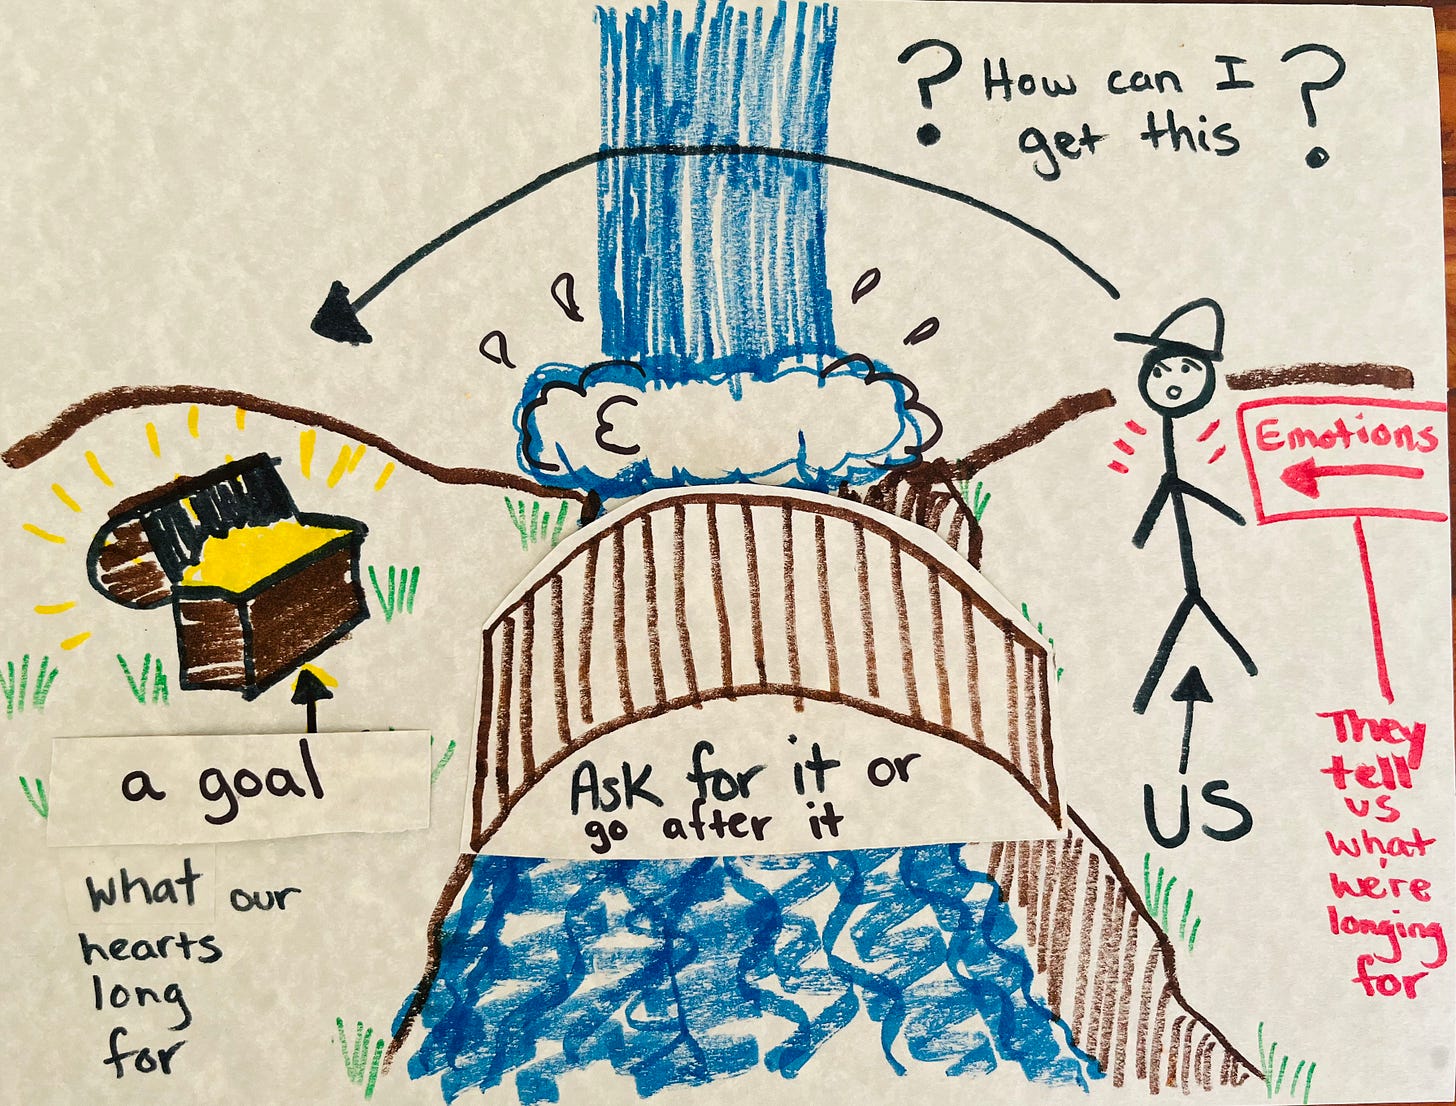 ? How can I ?
get this
Emotions
They
tell
us
what
we're
longing
for
a goal
Ask for it or
go after it
US
what our
hearts
long
for